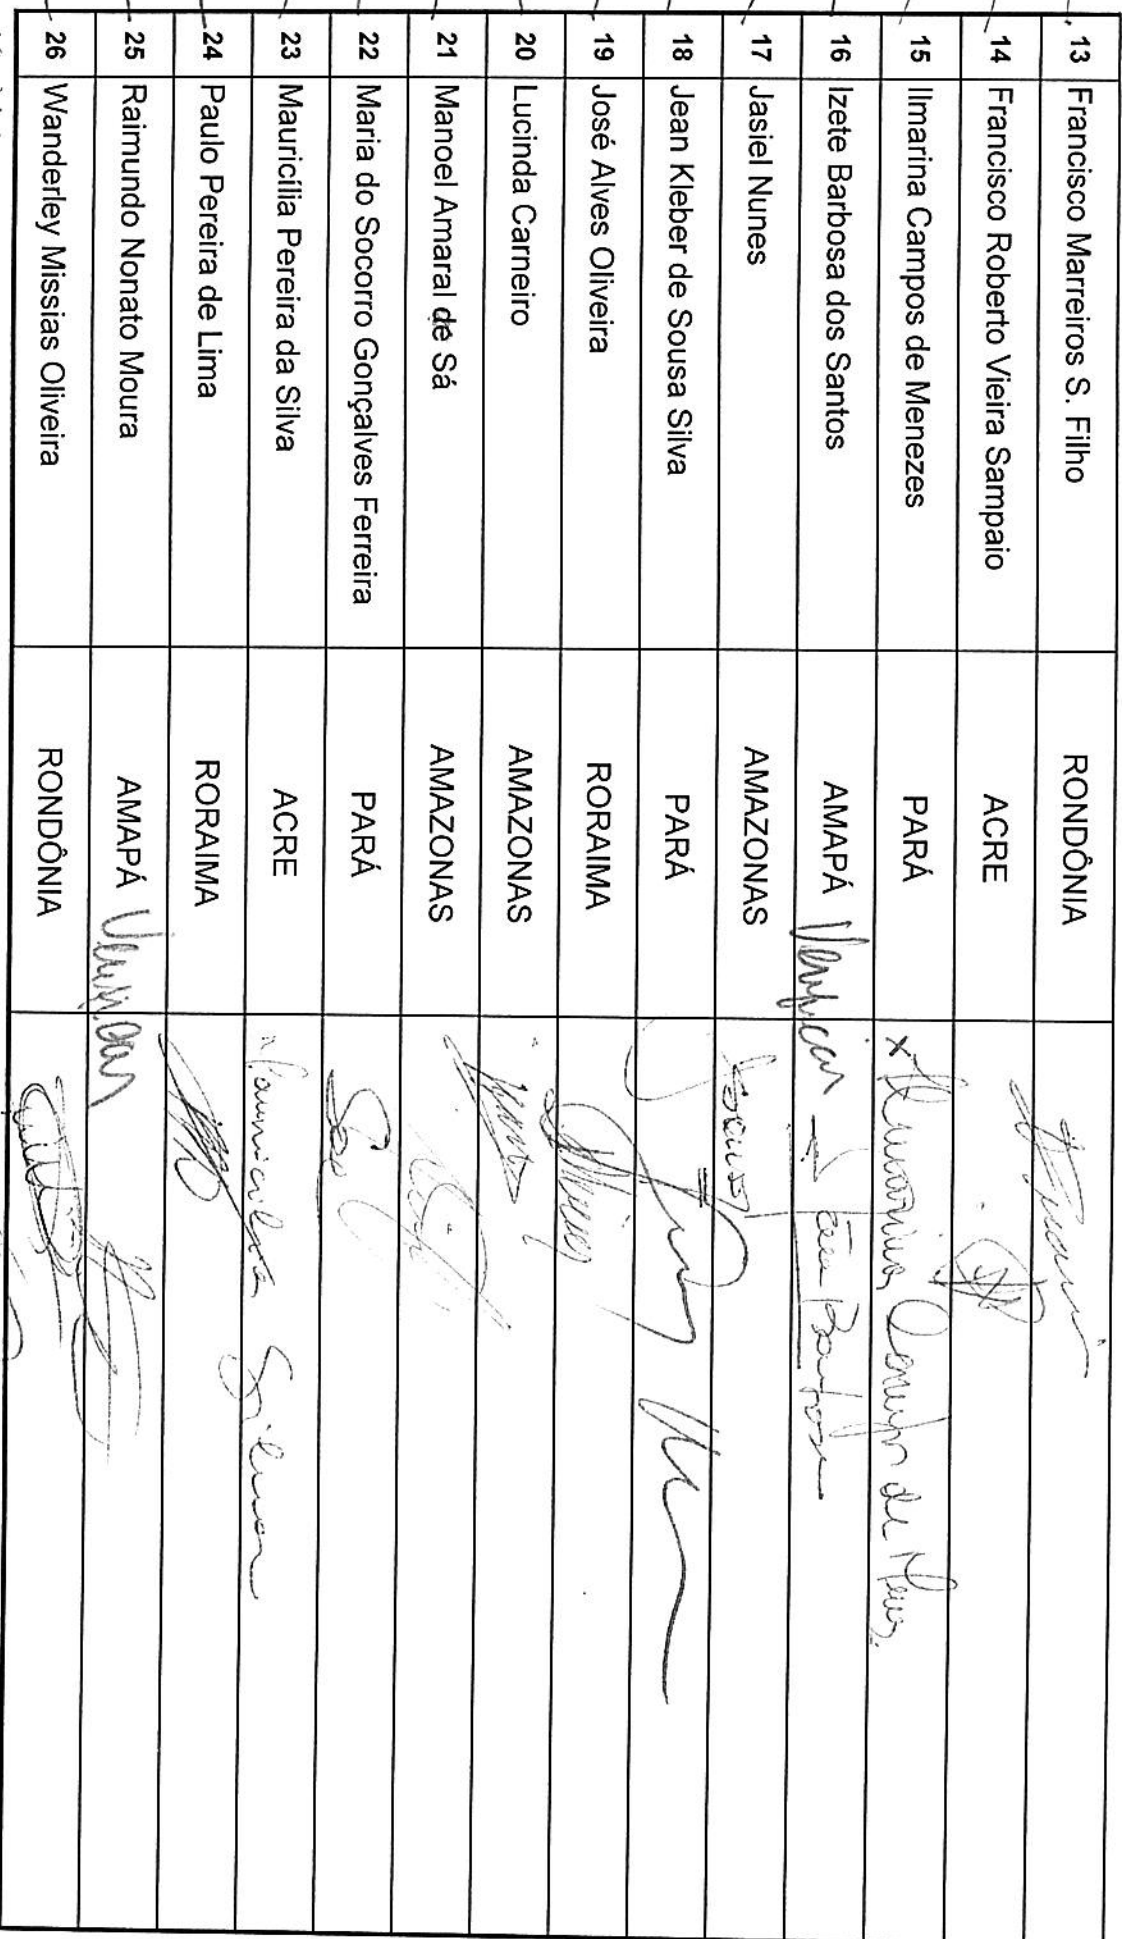 13 Francisco Marreiros S. Filho RONDÔNIA
14 Francisco Roberto Vieira Sampaio ACRE
15 Ilmarina Campos de Menezes PARÁ x Ilmarina Campos de
16 Izete Barbosa dos Santos AMAPÁ Verificar Barbosa
17 Jasiel Nunes AMAZONAS
18 Jean Kleber de Sousa Silva PARÁ
19 José Alves Oliveira RORAIMA
20 Lucinda Carneiro AMAZONAS
21 Manoel Amaral de Sá AMAZONAS
22 Maria do Socorro Gonçalves Ferreira PARÁ
23 Mauricília Pereira da Silva ACRE
24 Paulo Pereira de Lima RORAIMA
25 Raimundo Nonato Moura AMAPÁ Verificar
26 Wanderley Missias Oliveira RONDÔNIA